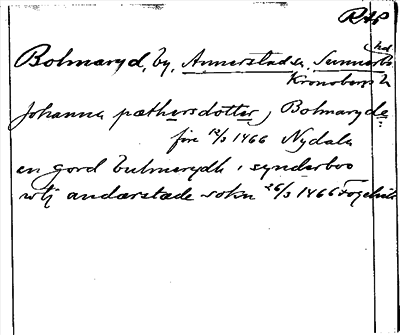 RAP
Bolmaryd, by, Annerstad sn, Sunnerbo hd
Kronobergs l.
Johanna pæthersdotter, Bolmaryde
före 12/3 1466 Nydala
en gord bulmerydh i synderboo
wtj andærstæde sokn 26/3 1466 Fogelvik